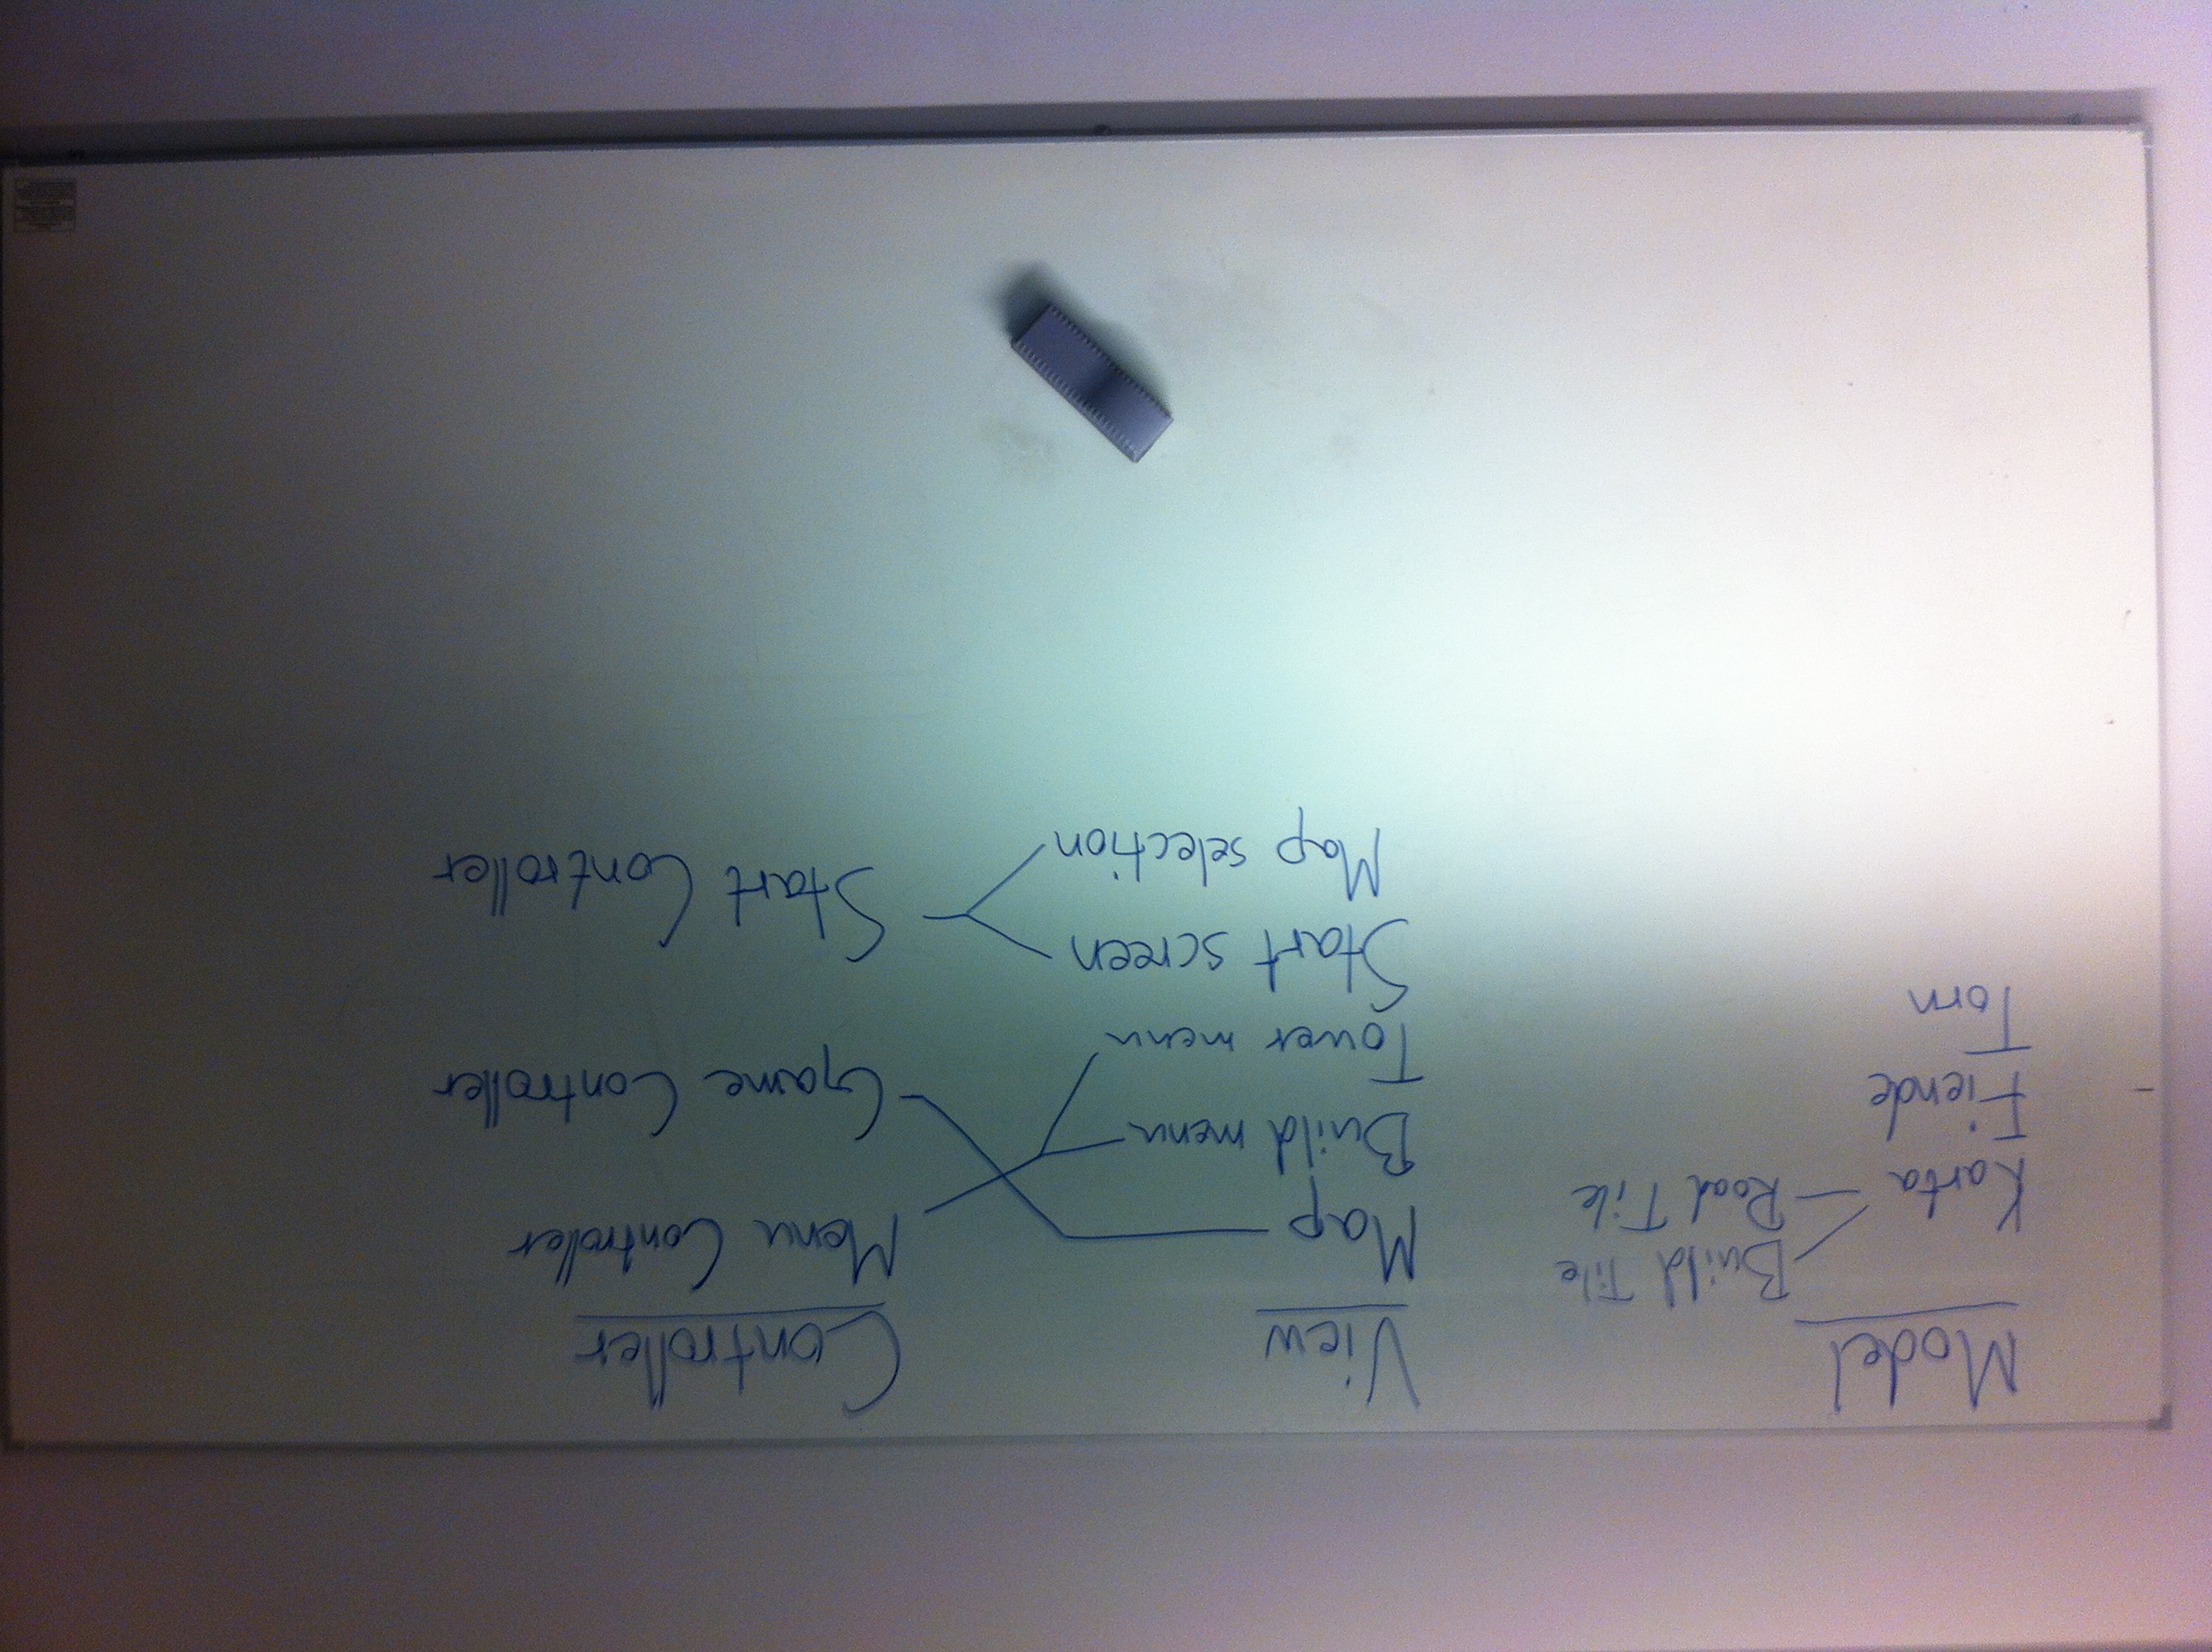 Model
Build Tile
Karta
Road Tile
Fiende
Torn
View
Map
Build menu
Tower menu
Start screen
Map selection
Controller
Menu Controller
Game Controller
Start Controller